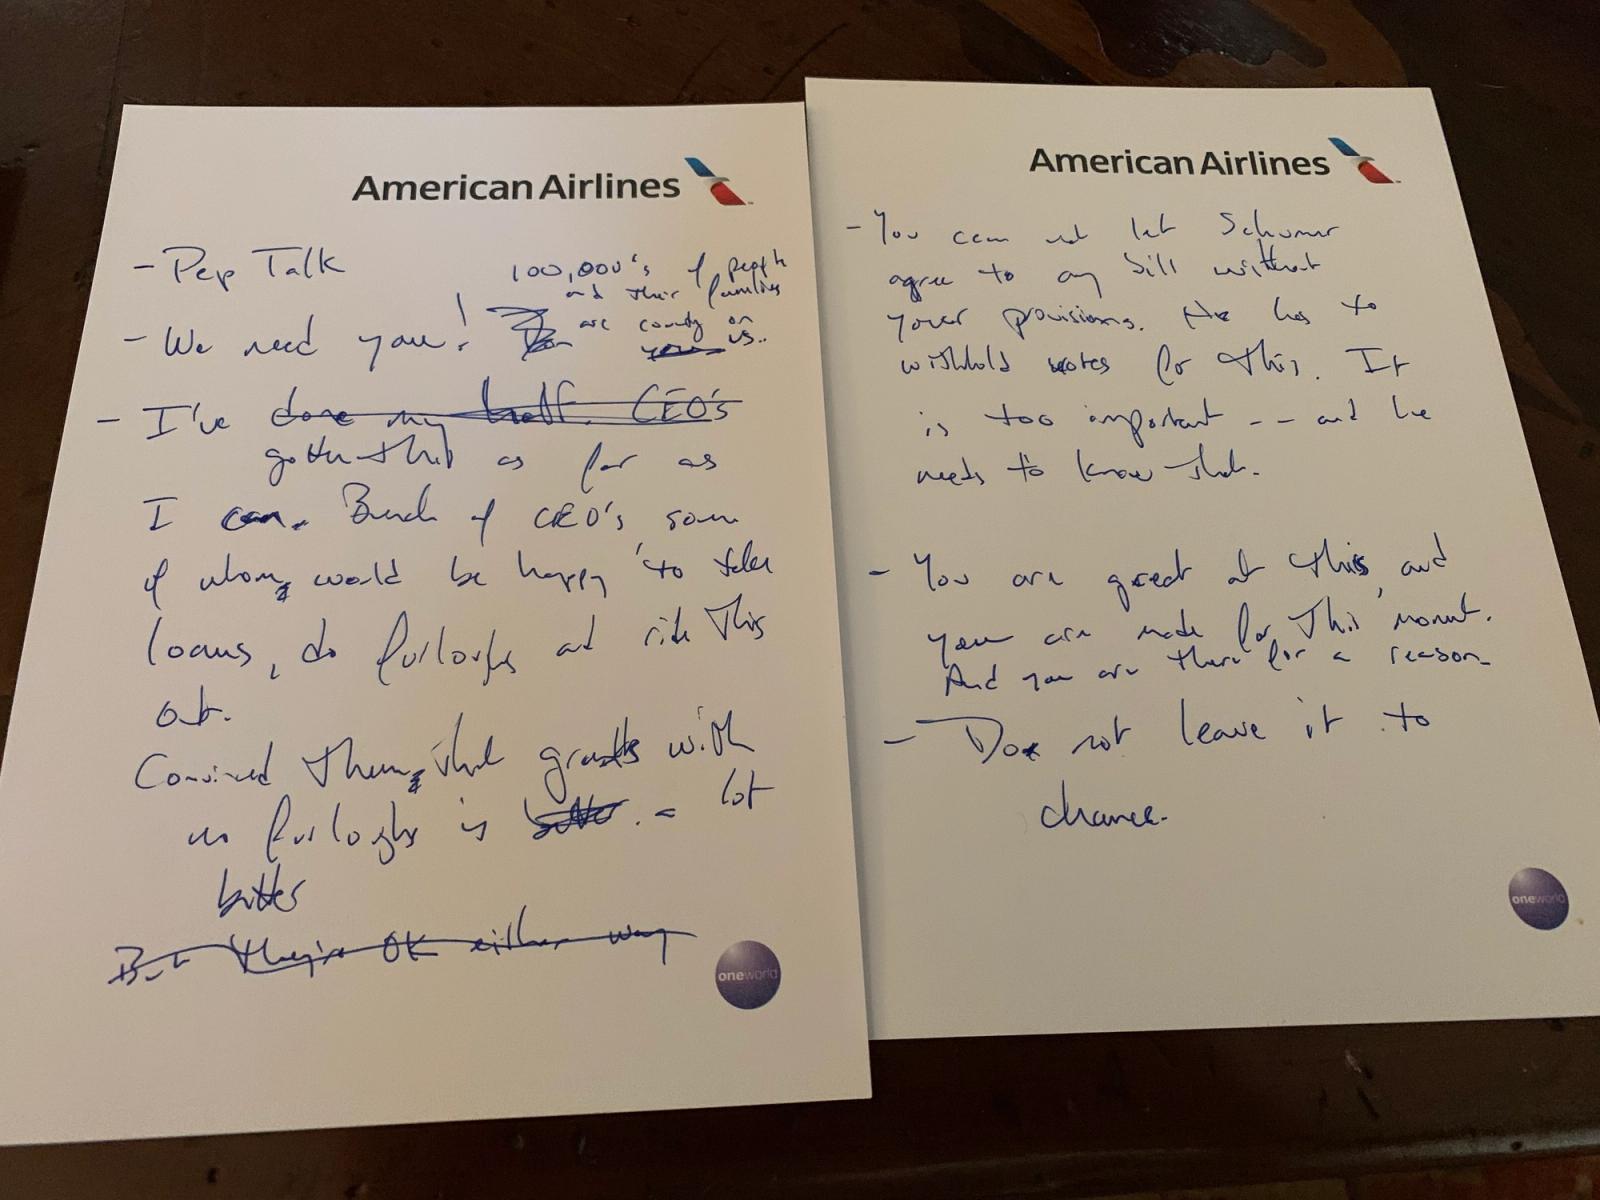 American Airlines
- Pep Talk
100,000's of people
and their families
are county on
us..
- We need you!
- I've done my half. CEO's
gotten this as far as
I can. Bunch of CEO's some
of whom would be happy to take
loans, do furloughs and ride This
out.
Convinced them that grants with
no furloughs is better. a lot
better
But they're OK either way
oneworld
American Airlines
- You can not let Schumer
agree to any bill without
your provisions. He has to
withhold votes for this. It
is too important -- and he
needs to know that.
- You are great at this, and
you are made for This moment.
And you are there for a reason.
- Do not leave it to
chance.
oneworld